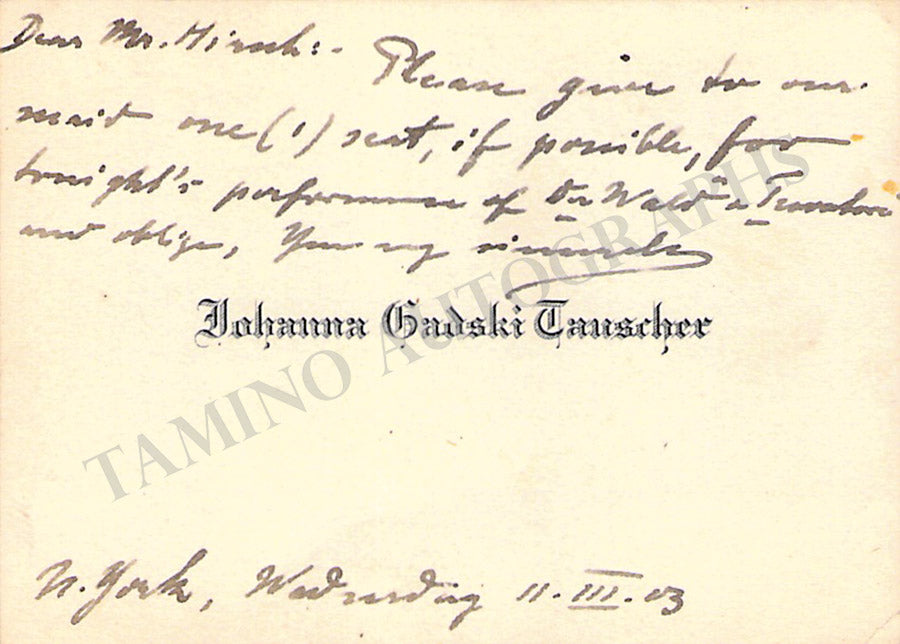 Dear Mr. Hirsch:-
Please give to our
maid one (1) seat, if possible, for
tonight's performance of "Der Wald" & Trovatore
and oblige, Yours very sincerely
Johanna Gadski Tauscher
TAMINO AUTOGRAPHS
N. York, Wednesday 11. III. 03